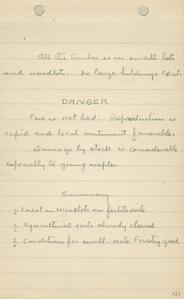 All the timber is in small lots
and woodlots. No large holdings exist.
DANGER
Fire is not bad. Reproduction is
rapid and local sentiment favorable.
Damage by stock is considerable
especially to young maples.
Summary
1. Forest in Woodlots on fertile soils
2. Agricultural soils already cleared
3. Conditions for small-scale Forestry good.